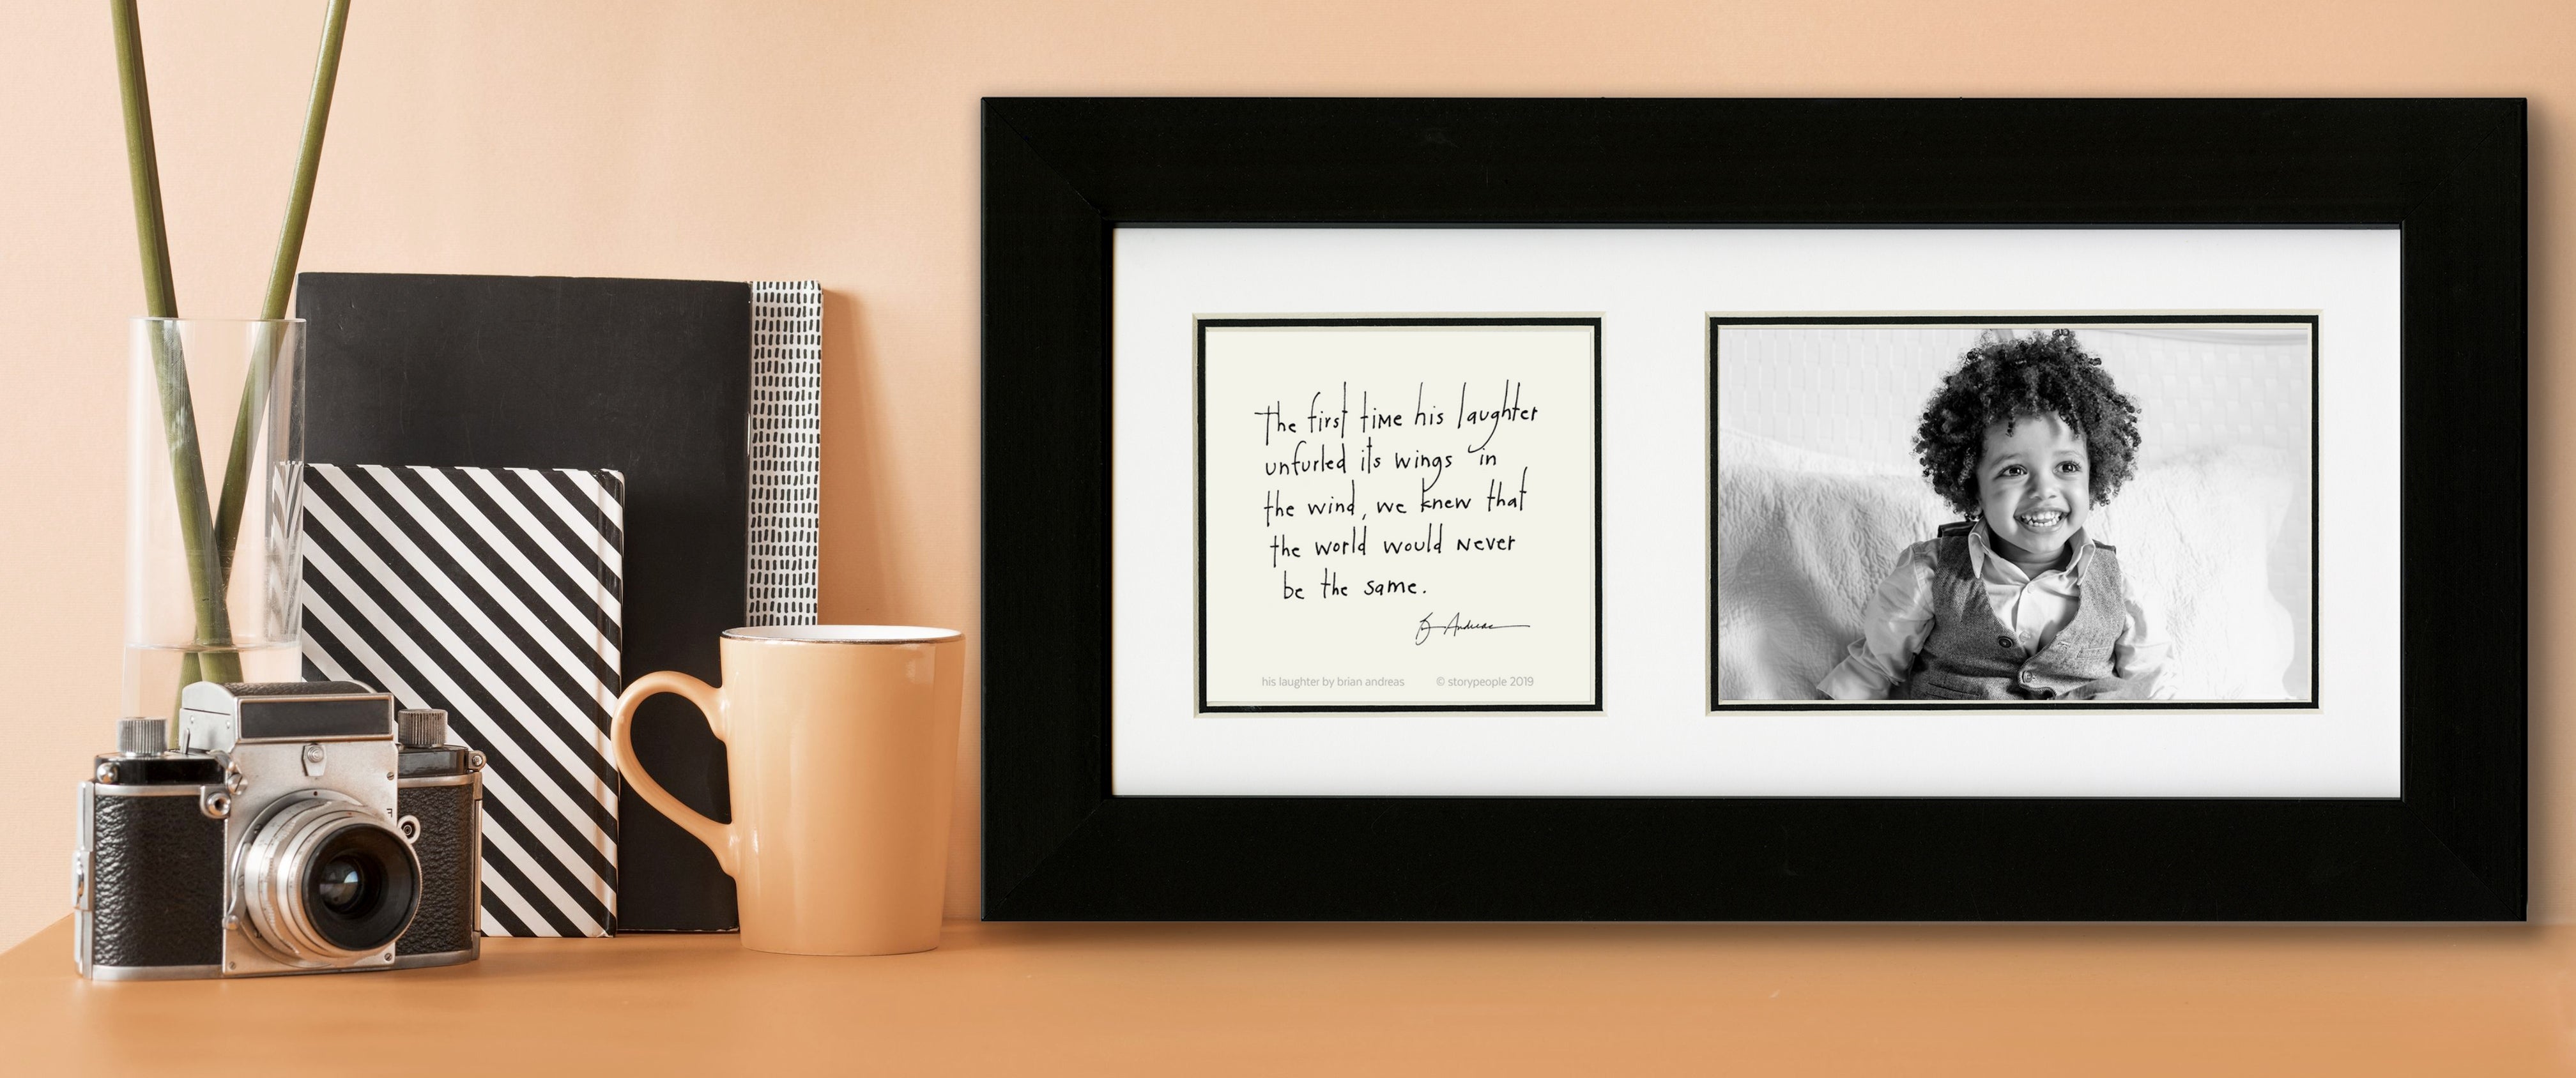 The first time his laughter
unfurled its wings in
the wind, we knew that
the world would never
be the same.
B Andreas
his laughter by brian andreas © storypeople 2019